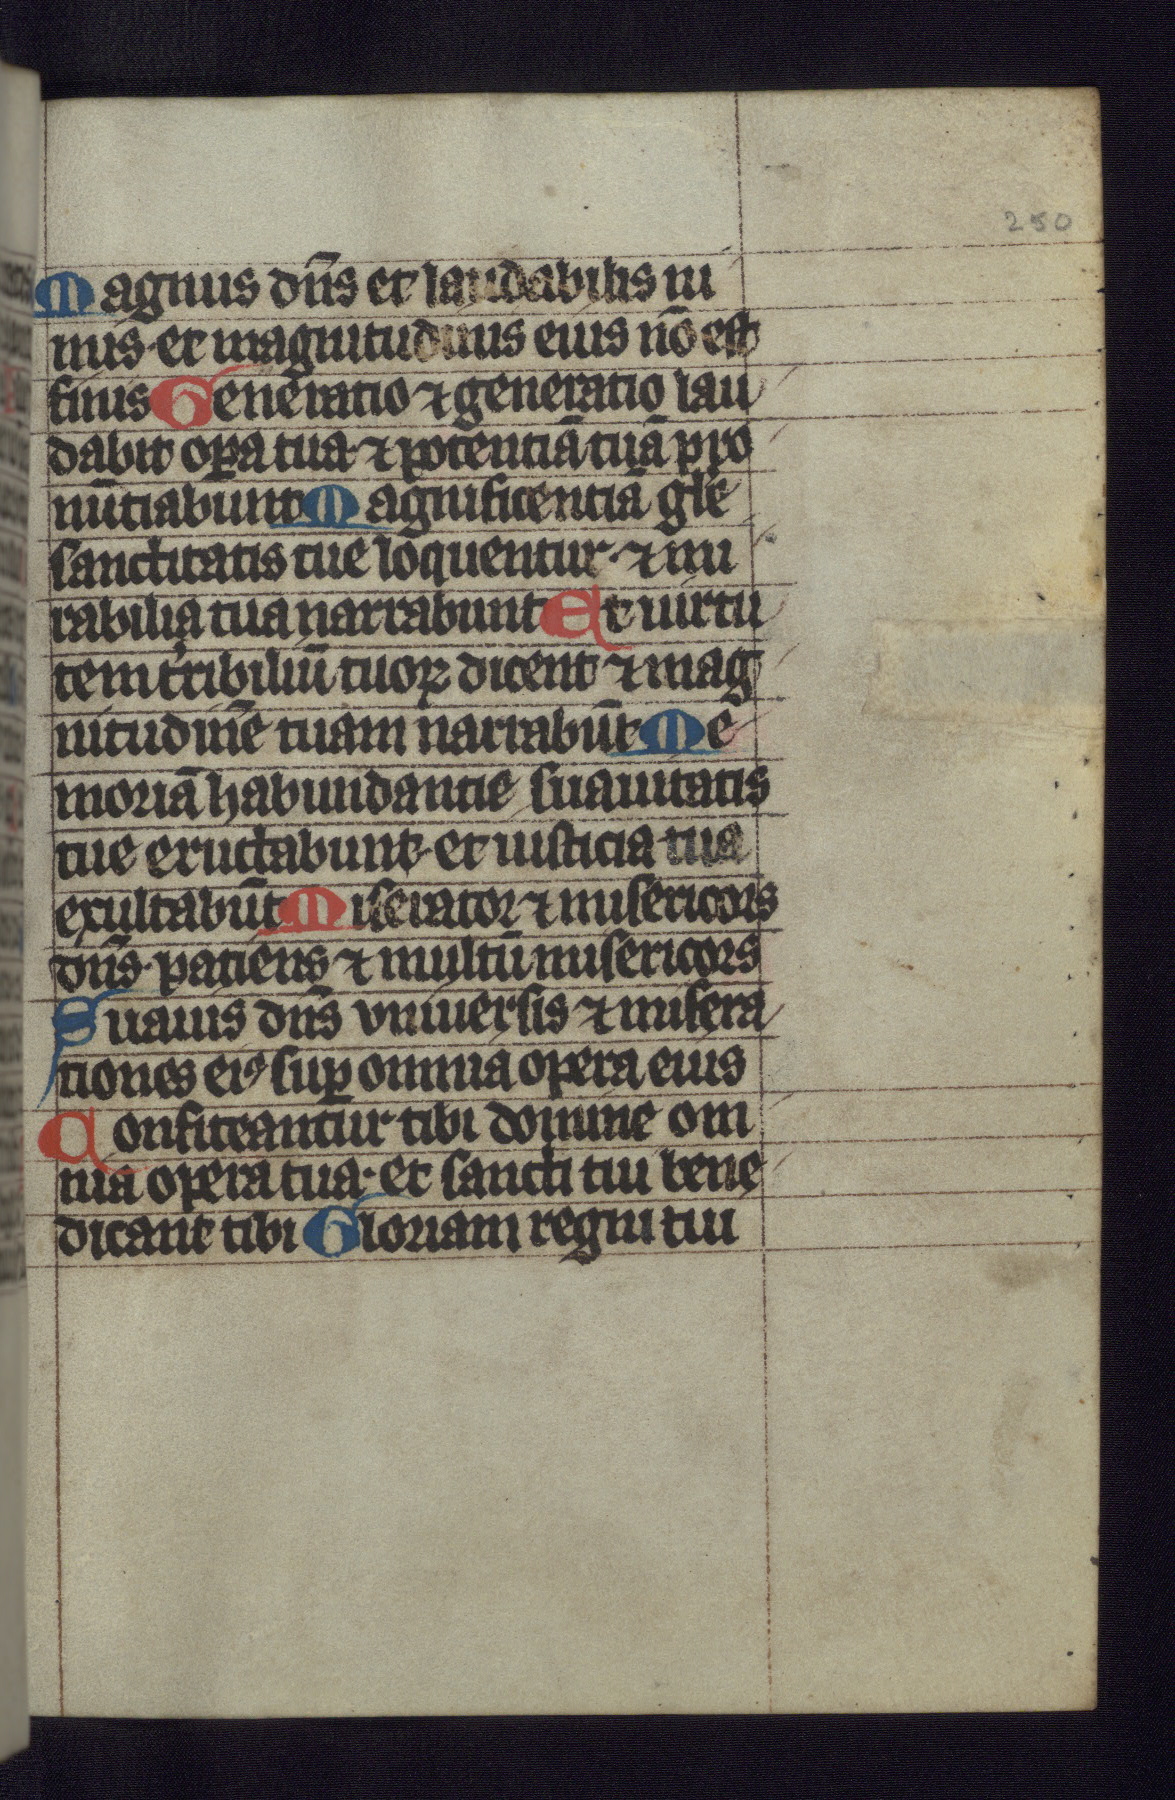 250
Magnus dn̄s et laudabilis ni
mis· et magnitudinis eius nō est
finis Generatio ⁊ generatio lau
dabit oꝑa tua· ⁊ potentiā tuā pro
nūtiabunt Magnificentiā glē
sanctitatis tue loquentur· ⁊ mi
rabilia tua narrabunt Et uirtu
tem t̾ribiliū tuoꝝ dicent ⁊ mag
nitudinē tuam narrabūt Me
moriā habundantie suauitatis
tue eructabunt· et iusticia tua
exultabūt Miserator ⁊ misericors
dn̄s· patiens ⁊ multū misericors
Suauis dn̄s vniuersis ⁊ misera
tiones eiꝰ suꝑ omnia opera eius
Confiteantur tibi domine om
nia opera tua· et sancti tui bene
dicant tibi Gloriam regni tui